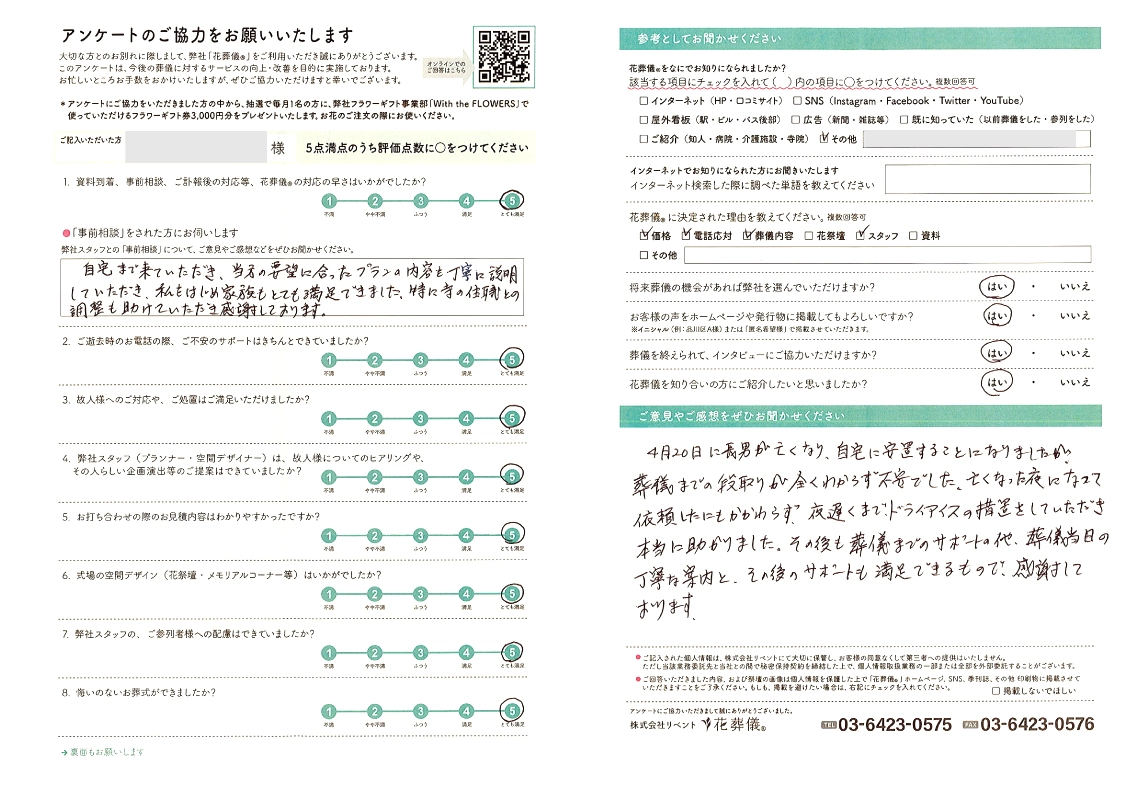 アンケートのご協力をお願いいたします
大切な方とのお別れに際しまして、弊社「花葬儀®」をご利用いただき誠にありがとうございます。
このアンケートは、今後の葬儀に対するサービスの向上・改善を目的に実施しております。
お忙しいところお手数をおかけいたしますが、ぜひご協力いただけますと幸いでございます。
オンラインでの
ご回答はこちら
＊アンケートにご協力をいただきました方の中から、抽選で毎月1名の方に、弊社フラワーギフト事業部「With the FLOWERS」で
使っていただけるフラワーギフト券3,000円分をプレゼントいたします。お花のご注文の際にお使いください。
ご記入いただいた方 様 5点満点のうち評価点数に○をつけてください
1. 資料到着、事前相談、ご訃報後の対応等、花葬儀®の対応の早さはいかがでしたか?
1 2 3 4 5
不満 やや不満 ふつう 満足 とても満足
●「事前相談」をされた方にお伺いします
弊社スタッフとの「事前相談」について、ご意見やご感想などをぜひお聞かせください。
自宅まで来ていただき、当方の要望に合ったプランの内容も丁寧に説明
していただき、私もはじめ家族もとても満足できました。特に寺の住職との
調整も助けていただき感謝しております。
2. ご逝去時のお電話の際、ご不安のサポートはきちんとできていましたか?
1 2 3 4 5
不満 やや不満 ふつう 満足 とても満足
3. 故人様へのご対応や、ご処置はご満足いただけましたか?
1 2 3 4 5
不満 やや不満 ふつう 満足 とても満足
4. 弊社スタッフ（プランナー・空間デザイナー）は、故人様についてのヒアリングや、
その人らしい企画演出等のご提案はできていましたか?
1 2 3 4 5
不満 やや不満 ふつう 満足 とても満足
5. お打ち合わせの際のお見積内容はわかりやすかったですか?
1 2 3 4 5
不満 やや不満 ふつう 満足 とても満足
6. 式場の空間デザイン（花祭壇・メモリアルコーナー等）はいかがでしたか?
1 2 3 4 5
不満 やや不満 ふつう 満足 とても満足
7. 弊社スタッフの、ご参列者様への配慮はできていましたか?
1 2 3 4 5
不満 やや不満 ふつう 満足 とても満足
8. 悔いのないお葬式ができましたか?
1 2 3 4 5
不満 やや不満 ふつう 満足 とても満足
→裏面もお願いします
参考としてお聞かせください
花葬儀®をなにでお知りになられましたか?
該当する項目にチェックを入れて（　）内の項目に○をつけてください。複数回答可
□ インターネット（HP・口コミサイト） □ SNS（Instagram・Facebook・Twitter・YouTube）
□ 屋外看板（駅・ビル・バス後部） □ 広告（新聞・雑誌等） □ 既に知っていた（以前葬儀をした・参列をした）
□ ご紹介（知人・病院・介護施設・寺院） ☑ その他
インターネットでお知りになられた方にお聞きいたします
インターネット検索した際に調べた単語を教えてください
花葬儀®に決定された理由を教えてください。複数回答可
☑ 価格 ☑ 電話応対 ☑ 葬儀内容 □ 花祭壇 ☑ スタッフ □ 資料
□ その他
将来葬儀の機会があれば弊社を選んでいただけますか? はい ・ いいえ
お客様の声をホームページや発行物に掲載してもよろしいですか? はい ・ いいえ
※イニシャル（例：品川区A様）または「匿名希望様」で掲載させていただきます。
葬儀を終えられて、インタビューにご協力いただけますか? はい ・ いいえ
花葬儀を知り合いの方にご紹介したいと思いましたか? はい ・ いいえ
ご意見やご感想をぜひお聞かせください
4月20日に長男が亡くなり、自宅に安置することになりましたが、
葬儀までの段取りが全くわからず不安でした。亡くなった夜になって
依頼したにもかかわらず、夜遅くまでドライアイスの措置をしていただき
本当に助かりました。その後も葬儀までのサポートの他、葬儀当日の
丁寧な案内と、その後のサポートも満足できるもので、感謝して
おります。
●ご記入された個人情報は、株式会社リベントにて大切に保管し、お客様の同意なくして第三者への提供はいたしません。
ただし当該業務委託先と当社との間で秘密保持契約を締結した上で、個人情報取扱業務の一部または全部を外部委託することがございます。
●ご回答いただきました内容、および祭壇の画像は個人情報を保護した上で「花葬儀®」ホームページ、SNS、季刊誌、その他 印刷物に掲載させて
いただきますことをご了承ください。もしも、掲載を避けたい場合は、右記にチェックを入れてください。 □ 掲載しないでほしい
アンケートにご協力いただきまして誠にありがとうございました。
株式会社リベント 花葬儀® TEL 03-6423-0575 FAX 03-6423-0576